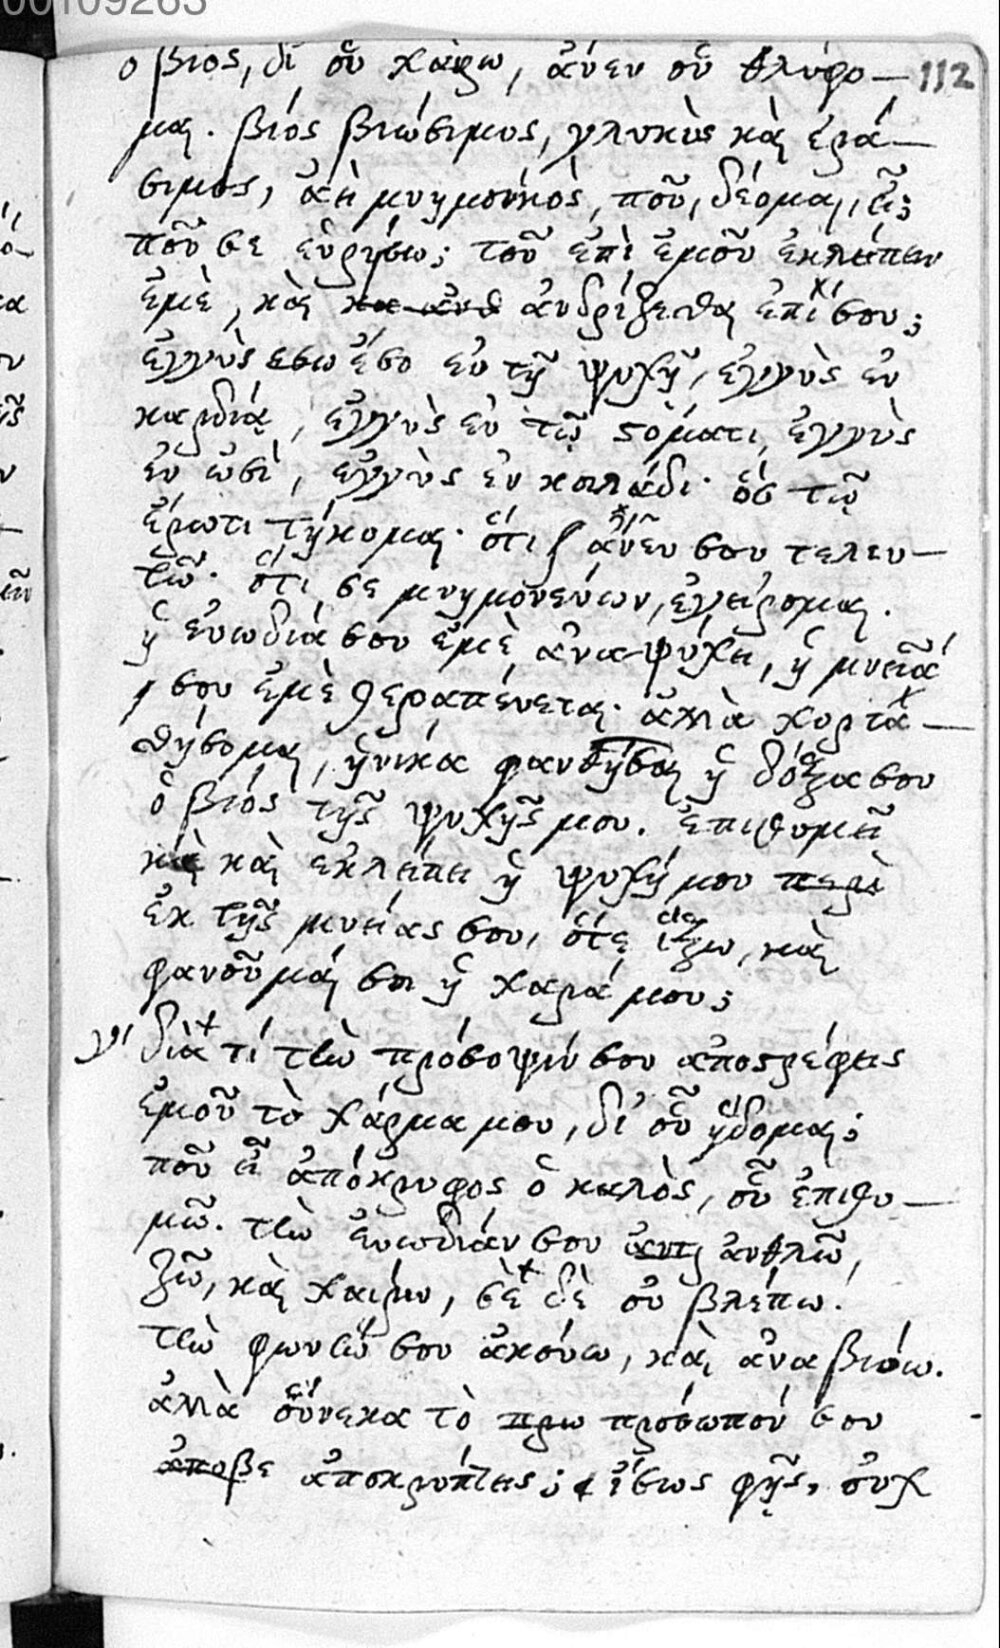 00109263
ὁ βίος, δι' οὗ χαίρω, ἄνευ οὗ θλίβο— 112
μαι. βίος βιώσιμος, γλυκὺς καὶ ἐρά—
σιμος, ἀεὶ μνημονικὸς, ποῦ, δέομαι, εἶ;
ποῦ σε εὑρήσω; τοῦ ἐπὶ ἐμοῦ ἐκλείπειν
ἐμὲ, καὶ ἀνδρίζεσθαι ἐπὶ σου;
ἐγγὺς ἔσο ἐν τῇ ψυχῇ, ἐγγὺς ἐν
καρδίᾳ, ἐγγὺς ἐν τῷ στόματι, ἐγγὺς
ἐν ὠσὶ, ἐγγὺς ἐν κοιλάδι. τῷ
ἔρωτι τήκομαι. ὅτι ἄνευ σου τελευ—
τῶ. ὅτι σε μνημονεύων, ἐγείρομαι.
ἡ εὐωδιά σου ἐμὲ ἀναψύχει, ἡ μνεία
σου ἐμὲ θεραπεύεται. ἀλλὰ χορτα—
θήσομαι, ἡνίκα φανθήσαι ἡ δόξα σου
ὁ βίος τῆς ψυχῆς μου. ἐπιθυμεῖ
καὶ ἐκλείπει ἡ ψυχή μου περὶ
ἐκ τῆς μνείας σου, ὅτε ἥξω, καὶ
φανοῦμαί σοι ἡ χαρά μου;
γ' διὰ τί τὼ πρόσοψίν σου ἀποστρέφεις
ἐμοῦ τὸ χάρμα μου, δι' οὗ ἥδομαι;
ποῦ εἶ ἀπόκρυφος ὁ καλὸς, οὗ ἐπιθυ—
μῶ. τὼ εὐωδιάν σου ἀντλῶ,
ζῶ, καὶ χαίρω, σὲ δὲ οὐ βλέπω.
τὼ φωνώ σου ἀκούω, καὶ ἀναβιόω.
ἀλλὰ οὕνεκα τὸ πρόσωπόν σου
ἀποκρύπτεις; ἴσως φῇς, οὐχ